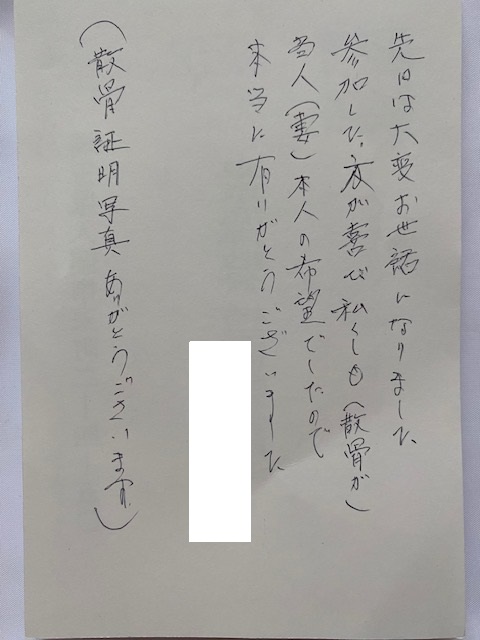 先日は大変お世話になりました、
参加した、方が喜び私くしも(散骨が)
当人(妻)本人の希望でしたので
本当に有りがとうございました
(散骨証明写真ありがとうございます。)